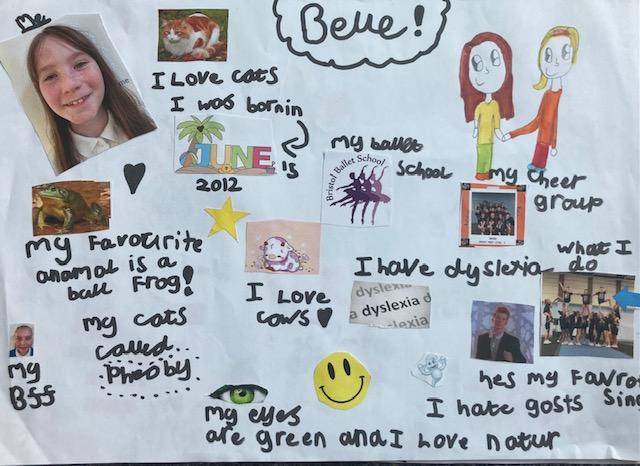 Me
Belle!
I Love cats
I was born in
JUNE
15
2012
my ballet
School
Bristol Ballet School
my cheer
group
my Favourite
anamal is a
ball Frog!
I Love
cows
I have dyslexia
dyslexia
a dyslexia d
dyslexia
what I
do
my cats
called
pheoby
my
Bff
my eyes
are green and I Love natur
hes my Favrot
Sing
I hate gosts